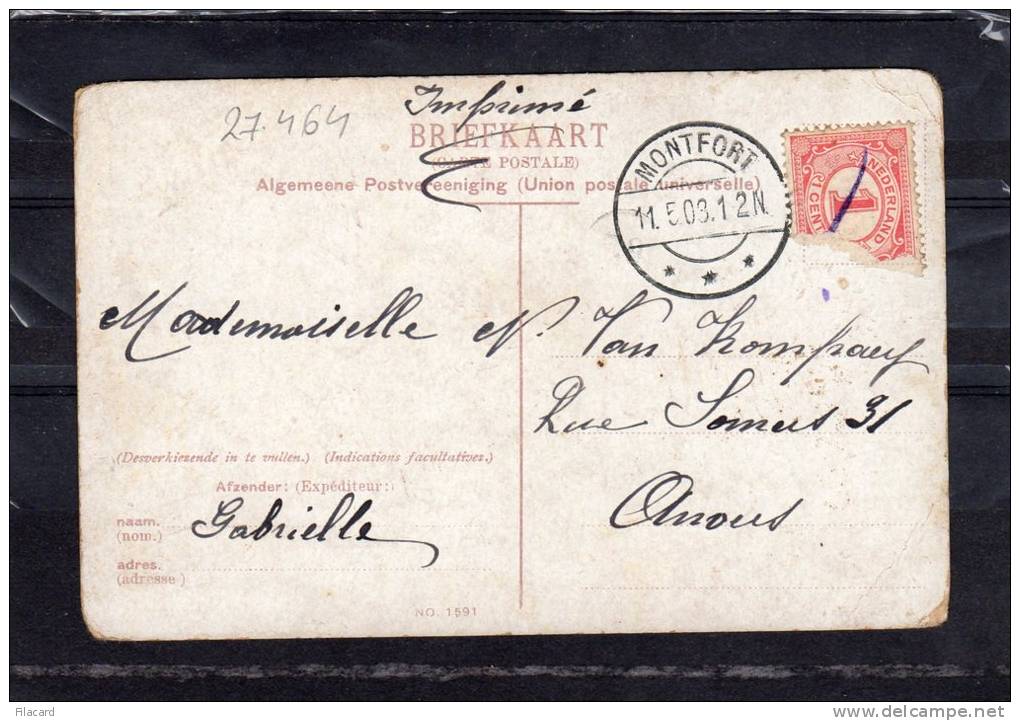 27.464
Imprimé
BRIEFKAART
(CARTE POSTALE)
Algemeene Postvereeniging (Union postale universelle)
MONTFORT
11.5.08.12N
NEDERLAND
1
1 CENT
Mademoiselle N. Van
Rue Somers 31
Anvers
(Desverkiezende in te vullen.) (Indications facultatives.)
Afzender: (Expéditeur:)
naam. Gabrielle
(nom.)
adres.
(adresse )
NO. 1591
Filacard
www.delcampe.net